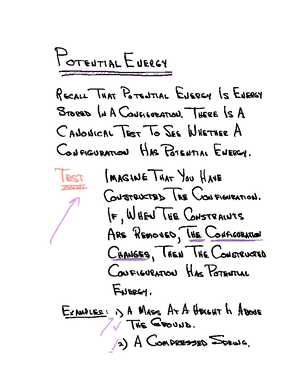 POTENTIAL ENERGY
RECALL THAT POTENTIAL ENERGY IS ENERGY
STORED IN A CONFIGURATION. THERE IS A
CANONICAL TEST TO SEE WHETHER A
CONFIGURATION HAS POTENTIAL ENERGY.
TEST IMAGINE THAT YOU HAVE
CONSTRUCTED THE CONFIGURATION.
IF, WHEN THE CONSTRAINTS
ARE REMOVED, THE CONFIGURATION
CHANGES, THEN THE CONSTRUCTED
CONFIGURATION HAS POTENTIAL
ENERGY.
EXAMPLES: 1) A MASS AT A HEIGHT h ABOVE
THE GROUND.
2) A COMPRESSED SPRING.